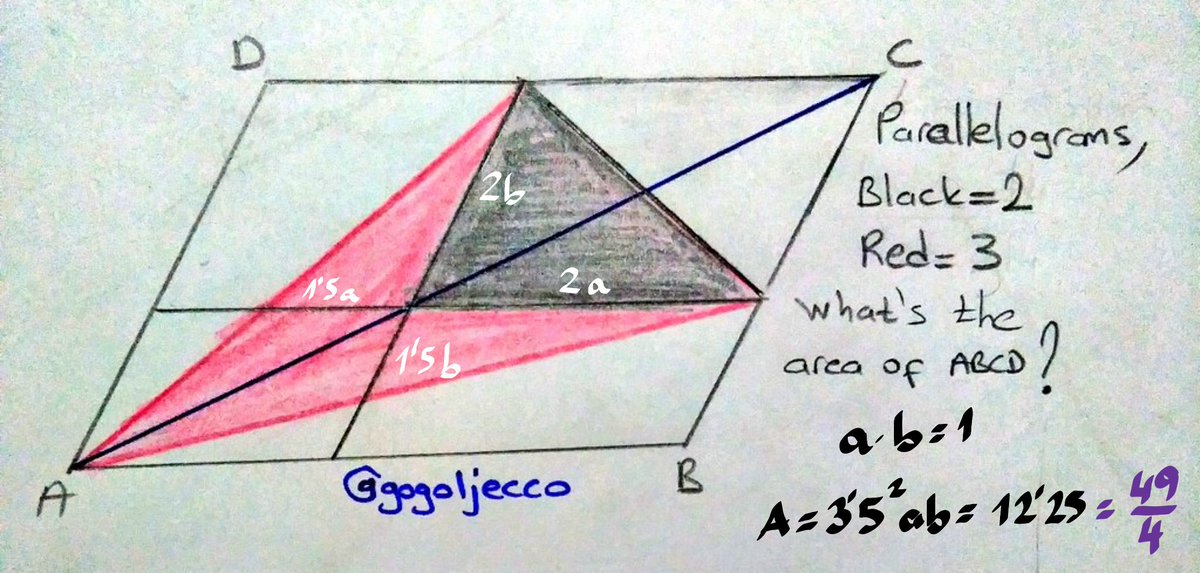 D
C
Parallelograms,
Black=2
Red=3
What's the
area of ABCD?
2b
1'5a
2a
1'5b
A
B
@gogoljecco
a·b=1
A=3'5²ab=12'25=49/4